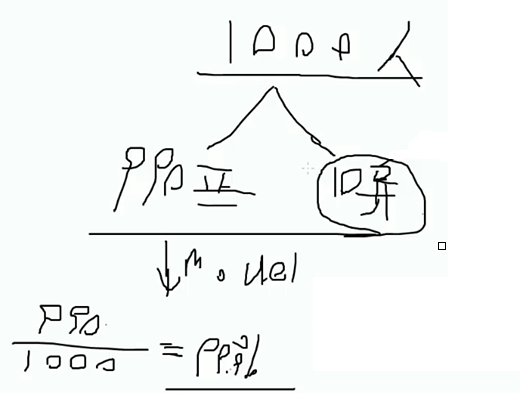 1000人
990正 10异
↓model
990
1000 =